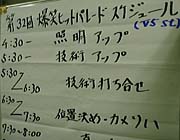 第32回 爆笑ヒットパレード スケジュール
(V5 st)
4:30- 照明アップ
5:30- 技術アップ
5:30
6:30 技術打ち合せ
6:30
7:30 位置決め・カメリハ
7:30-8:00